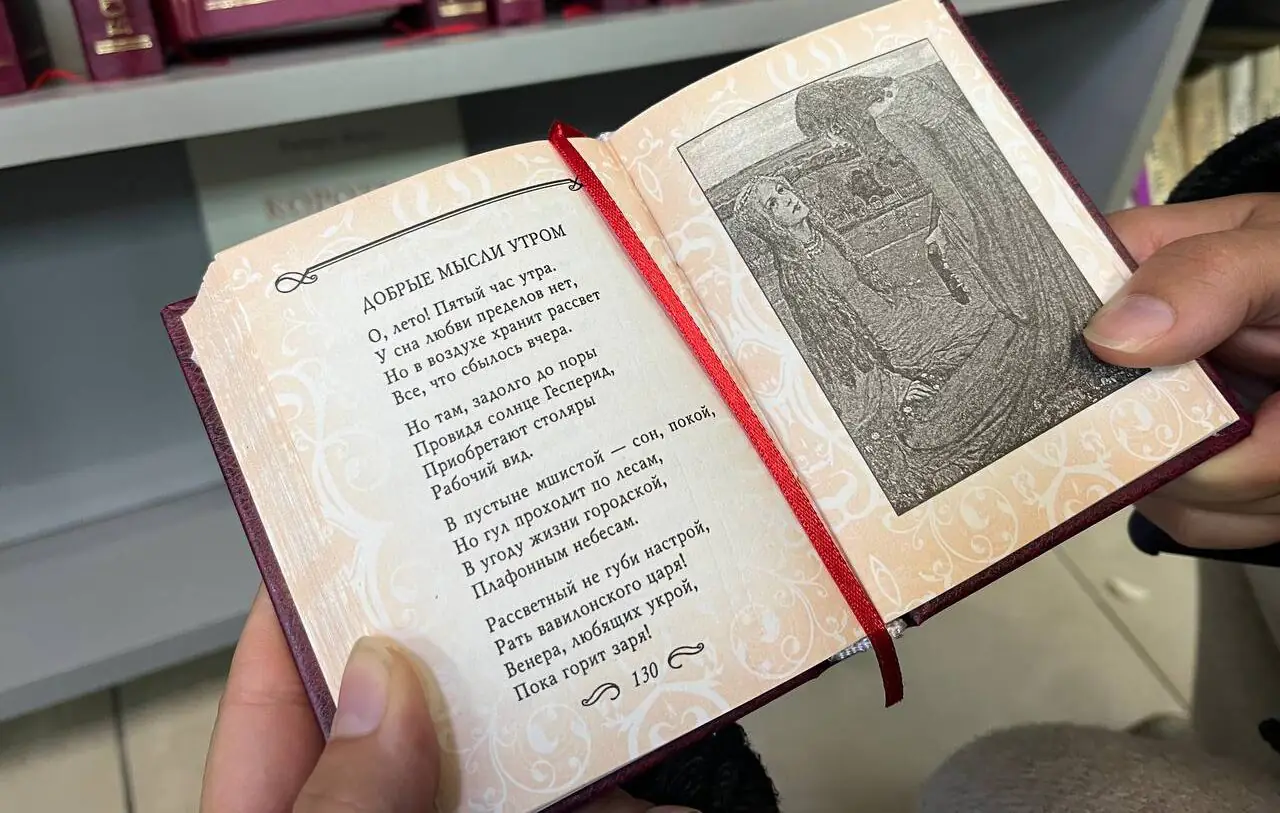 ДОБРЫЕ МЫСЛИ УТРОМ
О, лето! Пятый час утра.
У сна любви пределов нет,
Но в воздухе хранит рассвет
Все, что сбылось вчера.
Но там, задолго до поры
Провидя солнце Гесперид,
Приобретают столяры
Рабочий вид.
В пустыне мшистой — сон, покой,
Но гул проходит по лесам,
В угоду жизни городской,
Плафонным небесам.
Рассветный не губи настрой,
Рать вавилонского царя!
Венера, любящих укрой,
Пока горит заря!
130